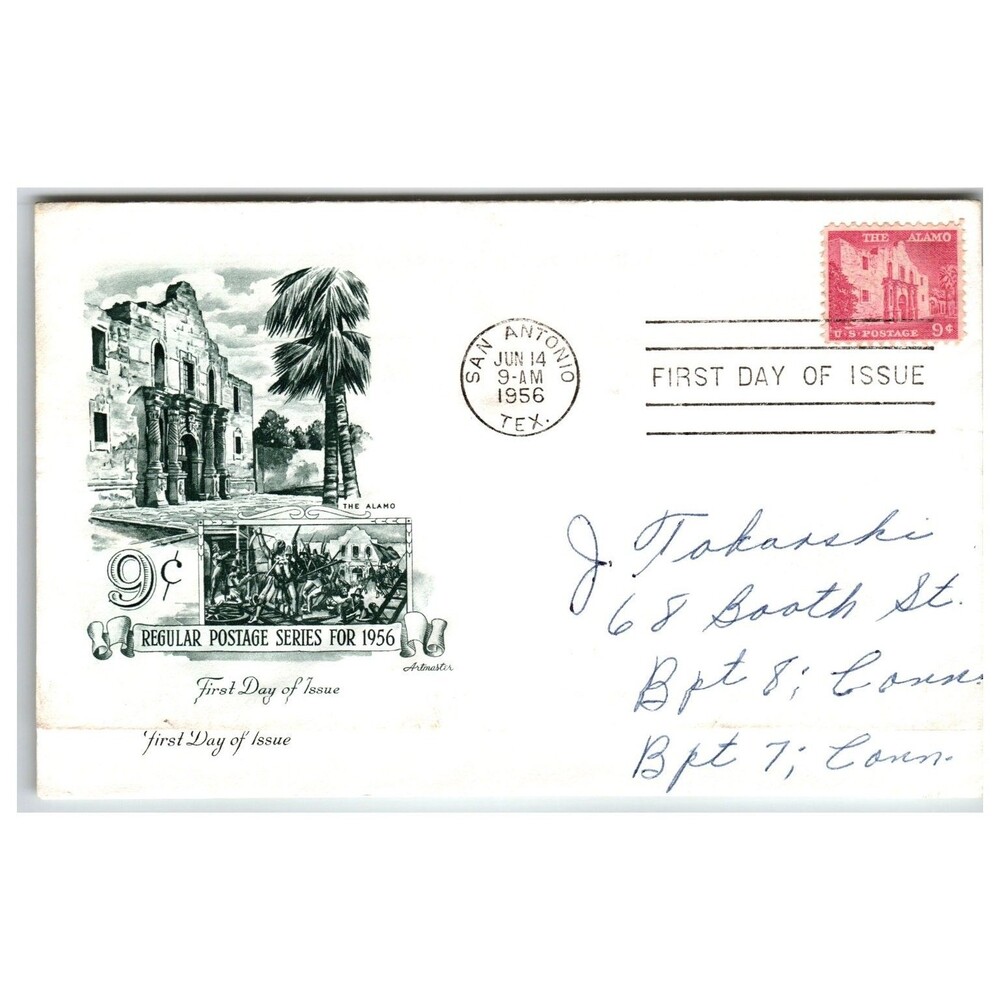 THE ALAMO
U·S·POSTAGE 9¢
SAN ANTONIO
JUN 14
9-AM
1956
TEX.
FIRST DAY OF ISSUE
THE ALAMO
9¢
REGULAR POSTAGE SERIES FOR 1956
Artmaster
First Day of Issue
First Day of Issue
J. Tokarski
68 Booth St.
Bpt 8; Conn.
Bpt 7; Conn.